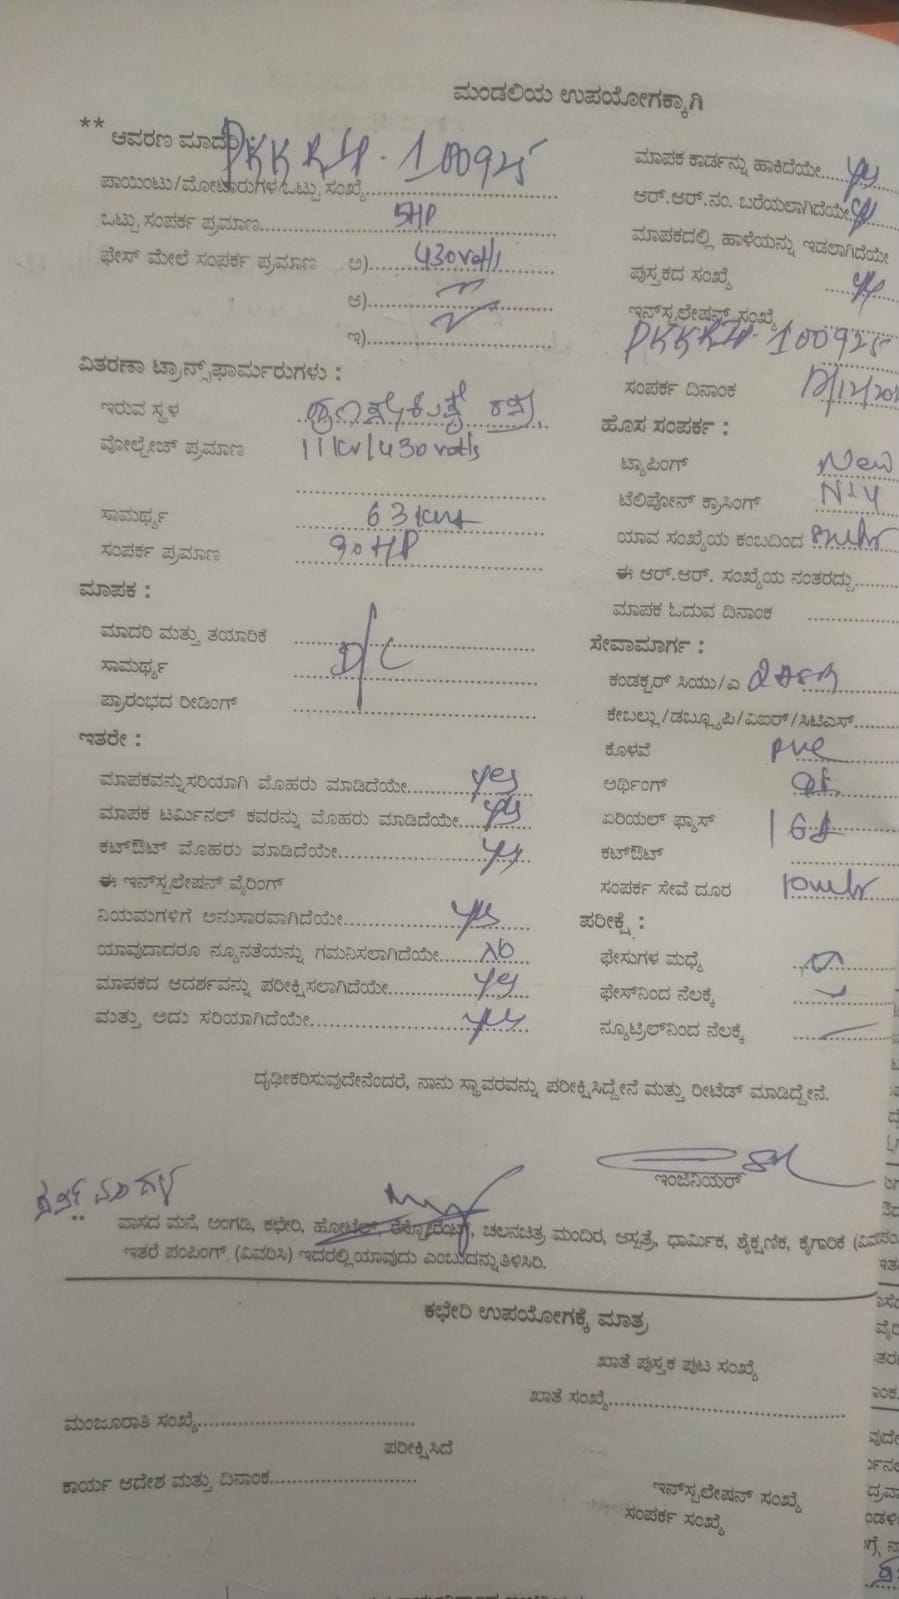 ಮಂಡಲಿಯ ಉಪಯೋಗಕ್ಕಾಗಿ
** ಆವರಣ ಮಾದರಿ : PKKRIP-100925
ಪಾಯಿಂಟು/ಮೋಟಾರುಗಳ ಒಟ್ಟು ಸಂಖ್ಯೆ
ಒಟ್ಟು ಸಂಪರ್ಕ ಪ್ರಮಾಣ 5HP
ಫೇಸ್ ಮೇಲೆ ಸಂಪರ್ಕ ಪ್ರಮಾಣ ಅ) 430 volts
ಆ)
ಇ)
ವಿತರಣಾ ಟ್ರಾನ್ಸ್‌ಫಾರ್ಮರುಗಳು :
ಇರುವ ಸ್ಥಳ
ವೋಲ್ಟೇಜ್ ಪ್ರಮಾಣ 11kv/430 volts
ಸಾಮರ್ಥ್ಯ 63 kva
ಸಂಪರ್ಕ ಪ್ರಮಾಣ 90 HP
ಮಾಪಕ :
ಮಾದರಿ ಮತ್ತು ತಯಾರಿಕೆ
ಸಾಮರ್ಥ್ಯ D/C
ಪ್ರಾರಂಭದ ರೀಡಿಂಗ್
ಇತರೇ :
ಮಾಪಕವನ್ನು ಸರಿಯಾಗಿ ಮೊಹರು ಮಾಡಿದೆಯೇ yes
ಮಾಪಕ ಟರ್ಮಿನಲ್ ಕವರನ್ನು ಮೊಹರು ಮಾಡಿದೆಯೇ yes
ಕಟ್‌ಔಟ್ ಮೊಹರು ಮಾಡಿದೆಯೇ yes
ಈ ಇನ್‌ಸ್ಟಲೇಷನ್ ವೈರಿಂಗ್
ನಿಯಮಗಳಿಗೆ ಅನುಸಾರವಾಗಿದೆಯೇ yes
ಯಾವುದಾದರೂ ನ್ಯೂನತೆಯನ್ನು ಗಮನಿಸಲಾಗಿದೆಯೇ No
ಮಾಪಕದ ಆದರ್ಶವನ್ನು ಪರೀಕ್ಷಿಸಲಾಗಿದೆಯೇ yes
ಮತ್ತು ಅದು ಸರಿಯಾಗಿದೆಯೇ yes
ಮಾಪಕ ಕಾರ್ಡನ್ನು ಹಾಕಿದೆಯೇ yes
ಆರ್.ಆರ್.ನಂ. ಬರೆಯಲಾಗಿದೆಯೇ yes
ಮಾಪಕದಲ್ಲಿ ಹಾಳೆಯನ್ನು ಇಡಲಾಗಿದೆಯೇ
ಪುಸ್ತಕದ ಸಂಖ್ಯೆ yes
ಇನ್‌ಸ್ಟಲೇಷನ್ ಸಂಖ್ಯೆ
PKKRIP-100925
ಸಂಪರ್ಕ ದಿನಾಂಕ
ಹೊಸ ಸಂಪರ್ಕ :
ಟ್ಯಾಪಿಂಗ್ New
ಟೆಲಿಪೋನ್ ಕ್ರಾಸಿಂಗ್ Nil
ಯಾವ ಸಂಖ್ಯೆಯ ಕಂಬದಿಂದ
ಈ ಆರ್.ಆರ್. ಸಂಖ್ಯೆಯ ನಂತರದ್ದು
ಮಾಪಕ ಓದುವ ದಿನಾಂಕ
ಸೇವಾಮಾರ್ಗ :
ಕಂಡಕ್ಟರ್ ಸಿಯು/ಎ
ಕೇಬಲ್ಲು/ಡಬ್ಲ್ಯೂಪಿ/ವಿಐರ್/ಸಿಟಿಎಸ್
ಕೊಳವೆ PVC
ಅರ್ಥಿಂಗ್
ಏರಿಯಲ್ ಫ್ಯಾಸ್
ಕಟ್‌ಔಟ್
ಸಂಪರ್ಕ ಸೇವೆ ದೂರ
ಪರೀಕ್ಷೆ :
ಫೇಸುಗಳ ಮಧ್ಯೆ
ಫೇಸ್‌ನಿಂದ ನೆಲಕ್ಕೆ
ನ್ಯೂಟ್ರಲ್‌ನಿಂದ ನೆಲಕ್ಕೆ
ದೃಢೀಕರಿಸುವುದೇನೆಂದರೆ, ನಾನು ಸ್ಥಾವರವನ್ನು ಪರೀಕ್ಷಿಸಿದ್ದೇನೆ ಮತ್ತು ರೀಟೆಡ್ ಮಾಡಿದ್ದೇನೆ.
ಇಂಜಿನಿಯರ್
ವಾಸದ ಮನೆ, ಅಂಗಡಿ, ಕಛೇರಿ, ಹೋಟೆಲ್, ರೆಸ್ಟೋರೆಂಟ್, ಚಲನಚಿತ್ರ ಮಂದಿರ, ಆಸ್ಪತ್ರೆ, ಧಾರ್ಮಿಕ, ಶೈಕ್ಷಣಿಕ, ಕೈಗಾರಿಕೆ
ಇತರೆ ಪಂಪಿಂಗ್ (ವಿವರಿಸಿ) ಇದರಲ್ಲಿ ಯಾವುದು ಎಂಬುದನ್ನು ತಿಳಿಸಿರಿ.
ಕಛೇರಿ ಉಪಯೋಗಕ್ಕೆ ಮಾತ್ರ
ಖಾತೆ ಪುಸ್ತಕ ಪುಟ ಸಂಖ್ಯೆ
ಖಾತೆ ಸಂಖ್ಯೆ
ಮಂಜೂರಾತಿ ಸಂಖ್ಯೆ
ಪರೀಕ್ಷಿಸಿದೆ
ಕಾರ್ಯ ಆದೇಶ ಮತ್ತು ದಿನಾಂಕ
ಇನ್‌ಸ್ಟಲೇಷನ್ ಸಂಖ್ಯೆ
ಸಂಪರ್ಕ ಸಂಖ್ಯೆ